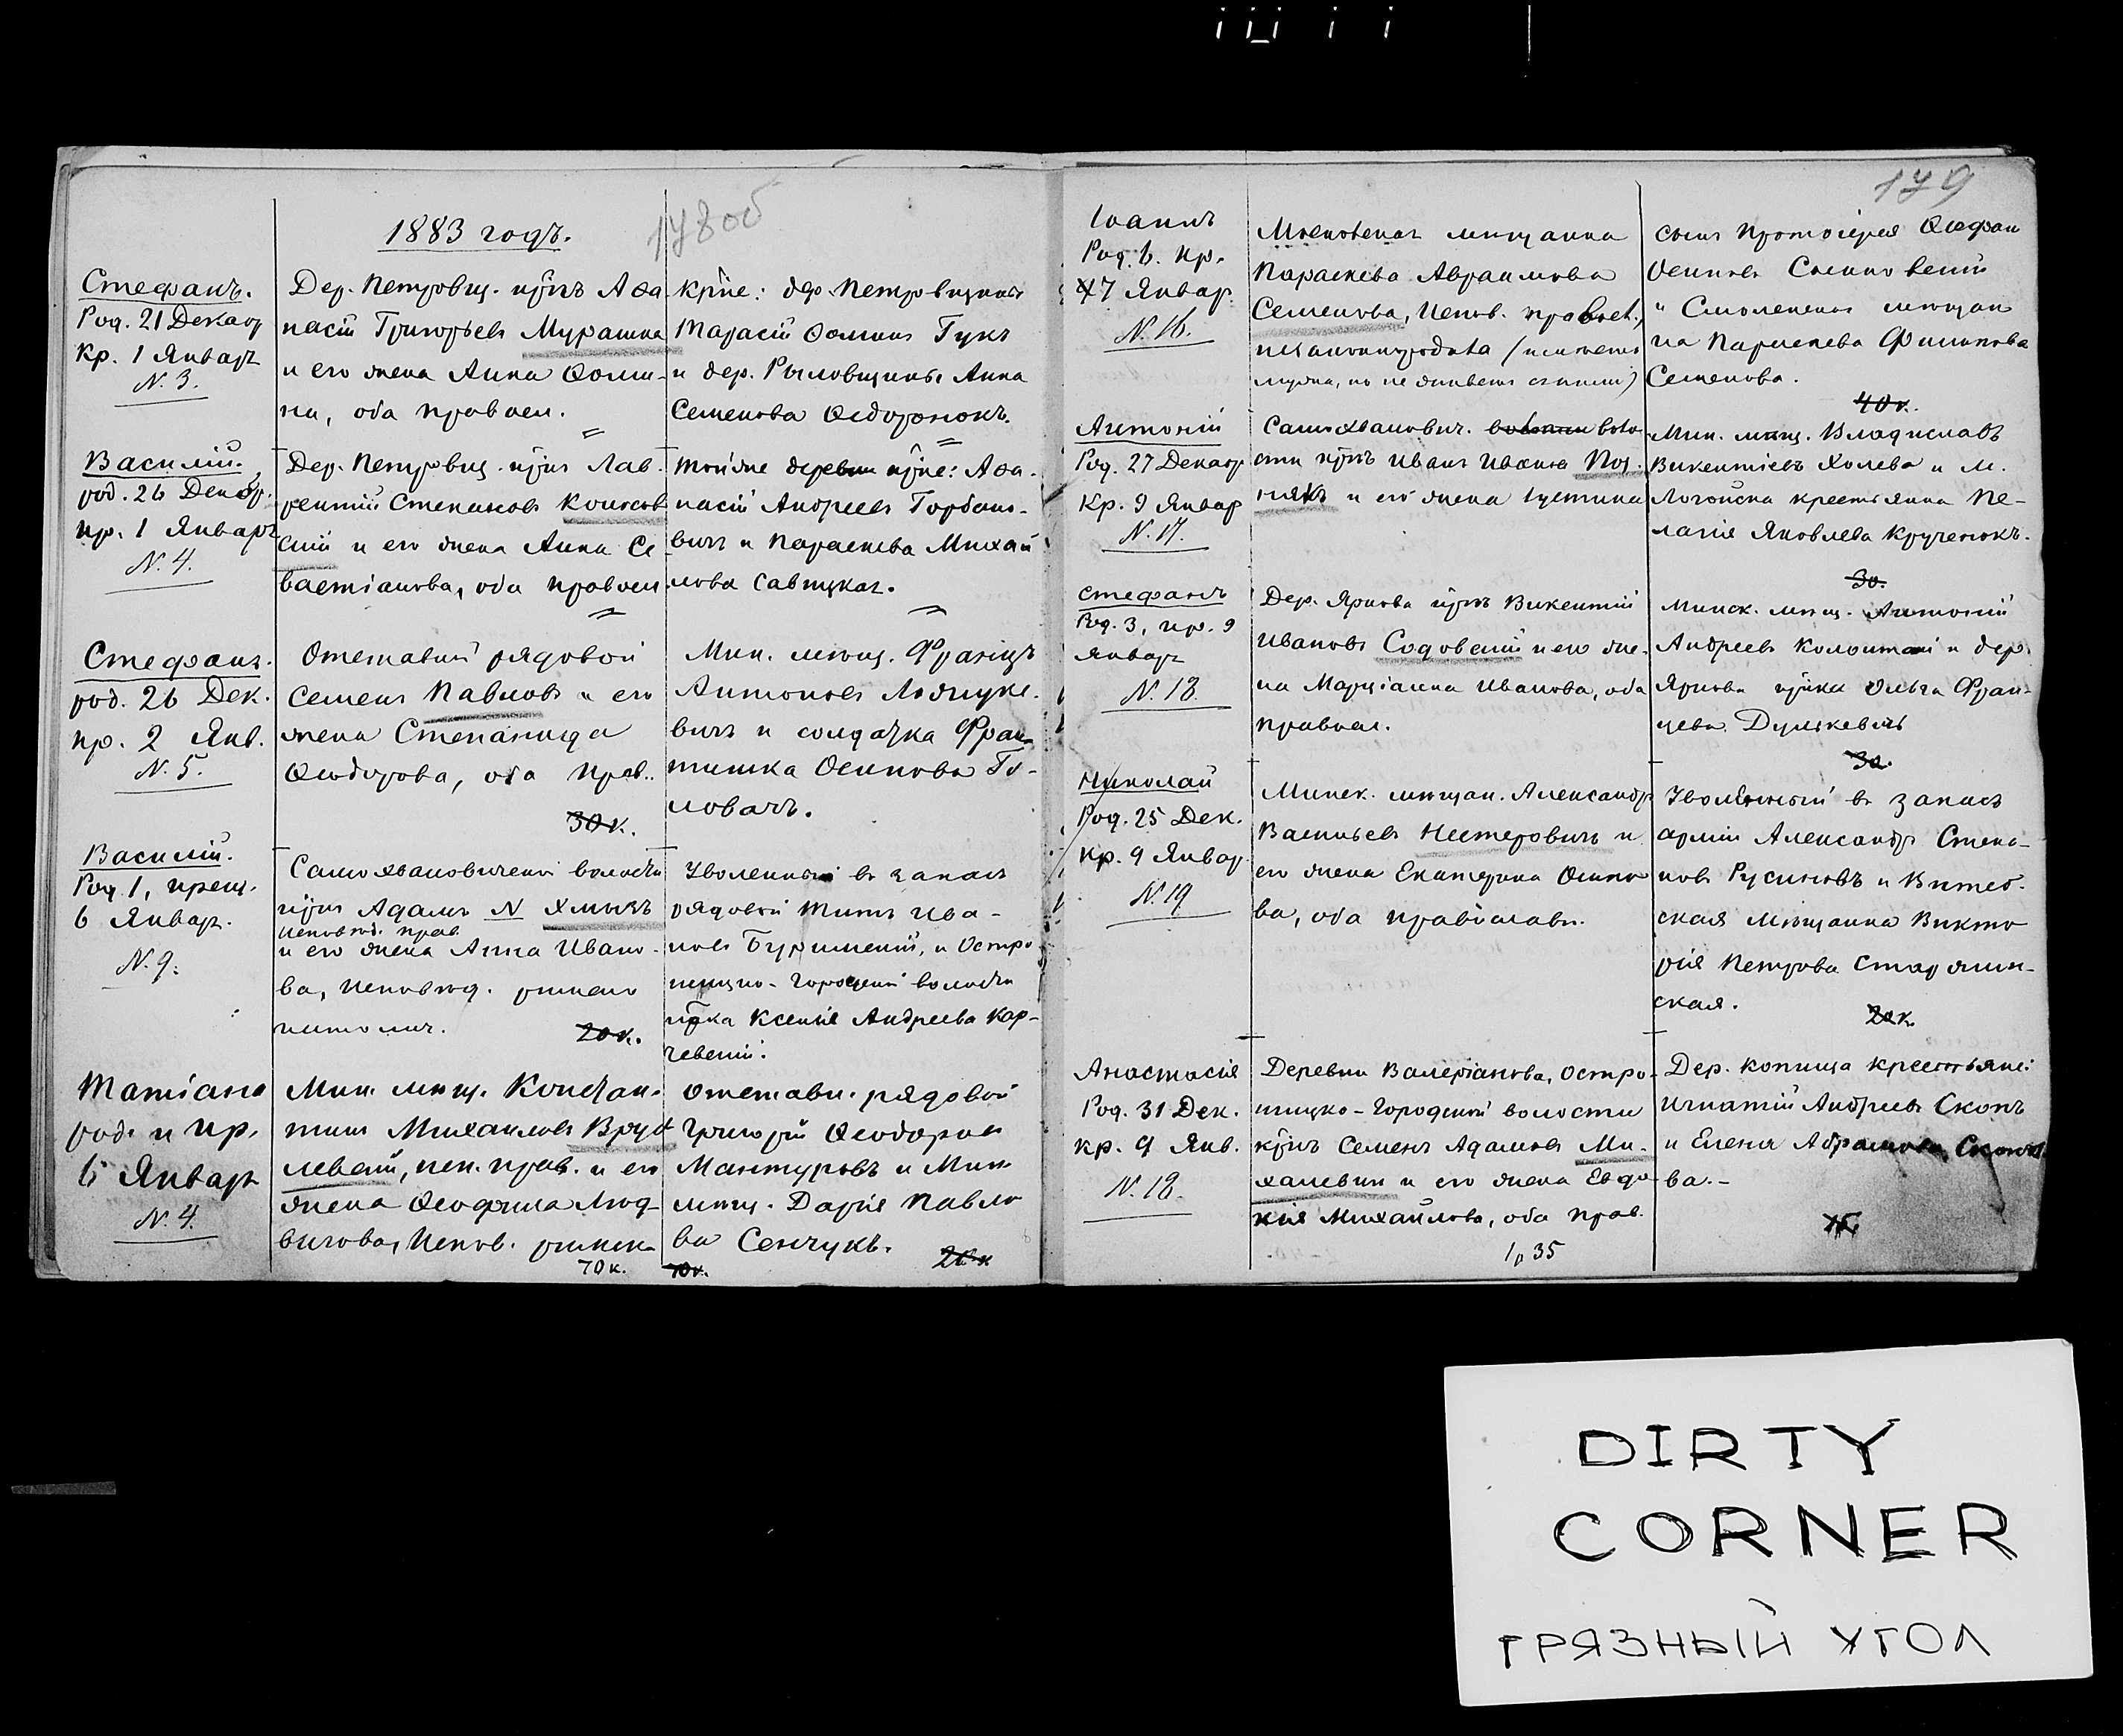 1883 годъ.
178об
Стефанъ.
Род. 21 Декабр
Кр. 1 Январ
N. 3.
Дер. Петровщ. крнъ Афа
насій Григорьевъ Мурашка
и его жена Анна Ѳоми-
на, оба правосл.
Крне: дер. Петровщины
Тарасій Ѳоминъ Гукъ
и дер. Рыловщины Анна
Семенова Ѳедоронокъ.
Василій.
род. 26 Декабр.
кр. 1 Январ
N. 4.
Дер. Петровщ. крнъ Лав-
рентій Степановъ
скій и его жена Анна Се
вастіанова, оба правосл.
Тойже деревни крне: Афа-
насій Андреевъ Горбано-
вичъ и Параскева Михай
лова Савицкая.
Стефанъ.
род. 26 Дек.
кр. 2 Янв.
N. 5.
Отставной рядовой
Семенъ Павловъ и его
жена Степанида
Ѳеодорова, оба прав.
30 к.
Мин. мѣщ. Францъ
Антоновъ
вичъ и солдатка Фран
тишка Осипова Го-
ловачъ.
Василій.
Род. 1, крещ.
6 Январ.
N. 9.
Самохваловичской волости
крнъ Адамъ N Хмызъ
исповѣд. прав.
и его жена Анна Ивано-
ва, исповѣд. римско
католич.
20 к.
Уволенный въ запасъ
рядовой Титъ Ива-
новъ и Остро
шицко-Городецкой волости
крка Ксенія Андреева Кар-
чевскій.
Татіана
род. и кр.
6 Январ
N. 4.
Мин. мѣщ. Констан-
тинъ Михаиловъ Вруб
левскій, исп. прав. и его
жена Ѳеофила Люд-
вигова, испов. римск.
70 к.
Отставн. рядовой
Григорій Ѳеодоровъ
Мантуровъ и Мин
мѣщ. Дарія Павло
ва Сенчукъ.
70 к.
20 к
179
Іоаннъ
Род. 6. кр.
7 Январ.
N. 16.
Московская мѣщанка
Параскева Авраамова
Семенова, испов. правосл.,
незаконнорожд
мужа, но не живетъ съ нимъ)
сынъ Протоіерея Стефан
Осиповъ
и Смоленская мѣщан
ка Параскева Филипова
Семенова.
40 к.
Антоній
Род. 27 Декабр
Кр. 9 Январ
N. 17.
Самохвалович. воло-
сти крнъ Иванъ Ивановъ
и его жена Іустина
Мин. мѣщ. Владиславъ
Викентіевъ Холева и м.
Логойска крестьянка Пе-
лагія Яковлева Крученокъ.
30.
Стефанъ
Род. 3, кр. 9
Январ
N. 18
Дер. Яркова крнъ Викентій
Ивановъ Содовскій и его же-
на Марціанна Иванова, оба
правосл.
Минск. мѣщ. Антоній
Андреевъ и дер.
Яркова крнка Ольга Фран-
цева Дулькевичъ
30.
Николай
Род. 25 Дек.
Кр. 9 Январ.
N. 19
Минск. мѣщан. Александр
Васильевъ Нестеровичъ и
его жена Екатерина Осипо
ва, оба православн.
Уволенный въ запасъ
арміи Александр Степа-
новъ Русиновъ и Витеб-
ская мѣщанка Викто
рія Петрова Старжин-
ская.
20 к.
Анастасія
Род. 31 Дек.
кр. 9 Янв.
N. 18.
Деревни Валеріанова, Остро-
шицко-Городской волости
крнъ Семенъ Адамовъ Ми-
халевин и его жена Евдо
кія Михайлова, оба прав.
1 р 35
Дер. Копища крестьяне:
Игнатій Андреевъ Скопъ
и Елена Абрамова
ва.-
DIRTY
CORNER
ГРЯЗНЫЙ УГОЛ